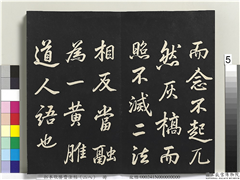 而念不起兀
然灰槁而
照不滅二法
相反當融
為一黃雎
道人語也
5